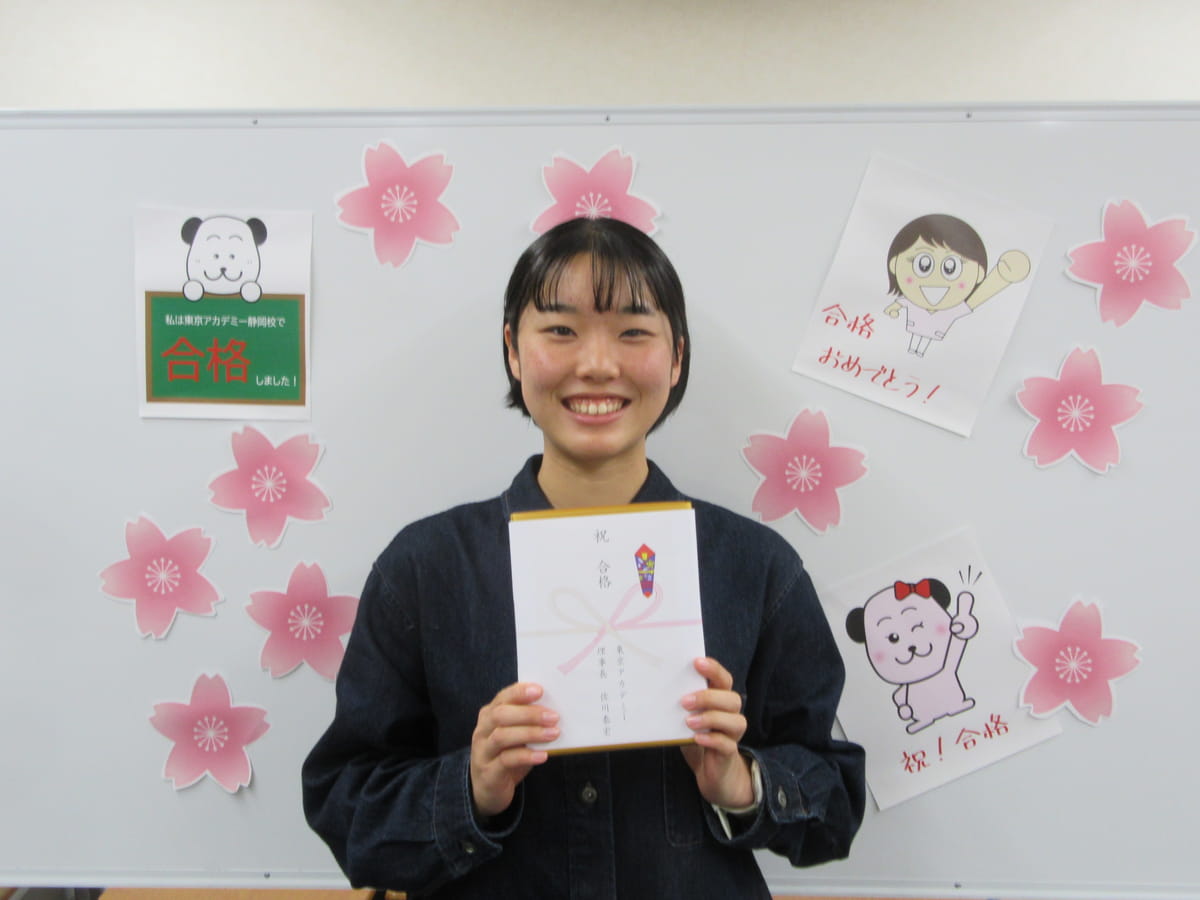 私は東京アカデミー静岡校で
合格
しました！
合格
おめでとう！
祝 合格
東京アカデミー
理事長 佐川泰宏
祝！合格